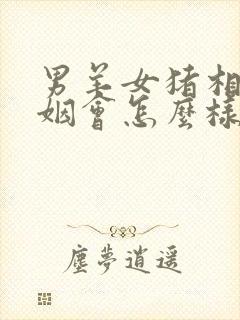 男羊女猪相
姻會怎麼樣
塵夢逍遥